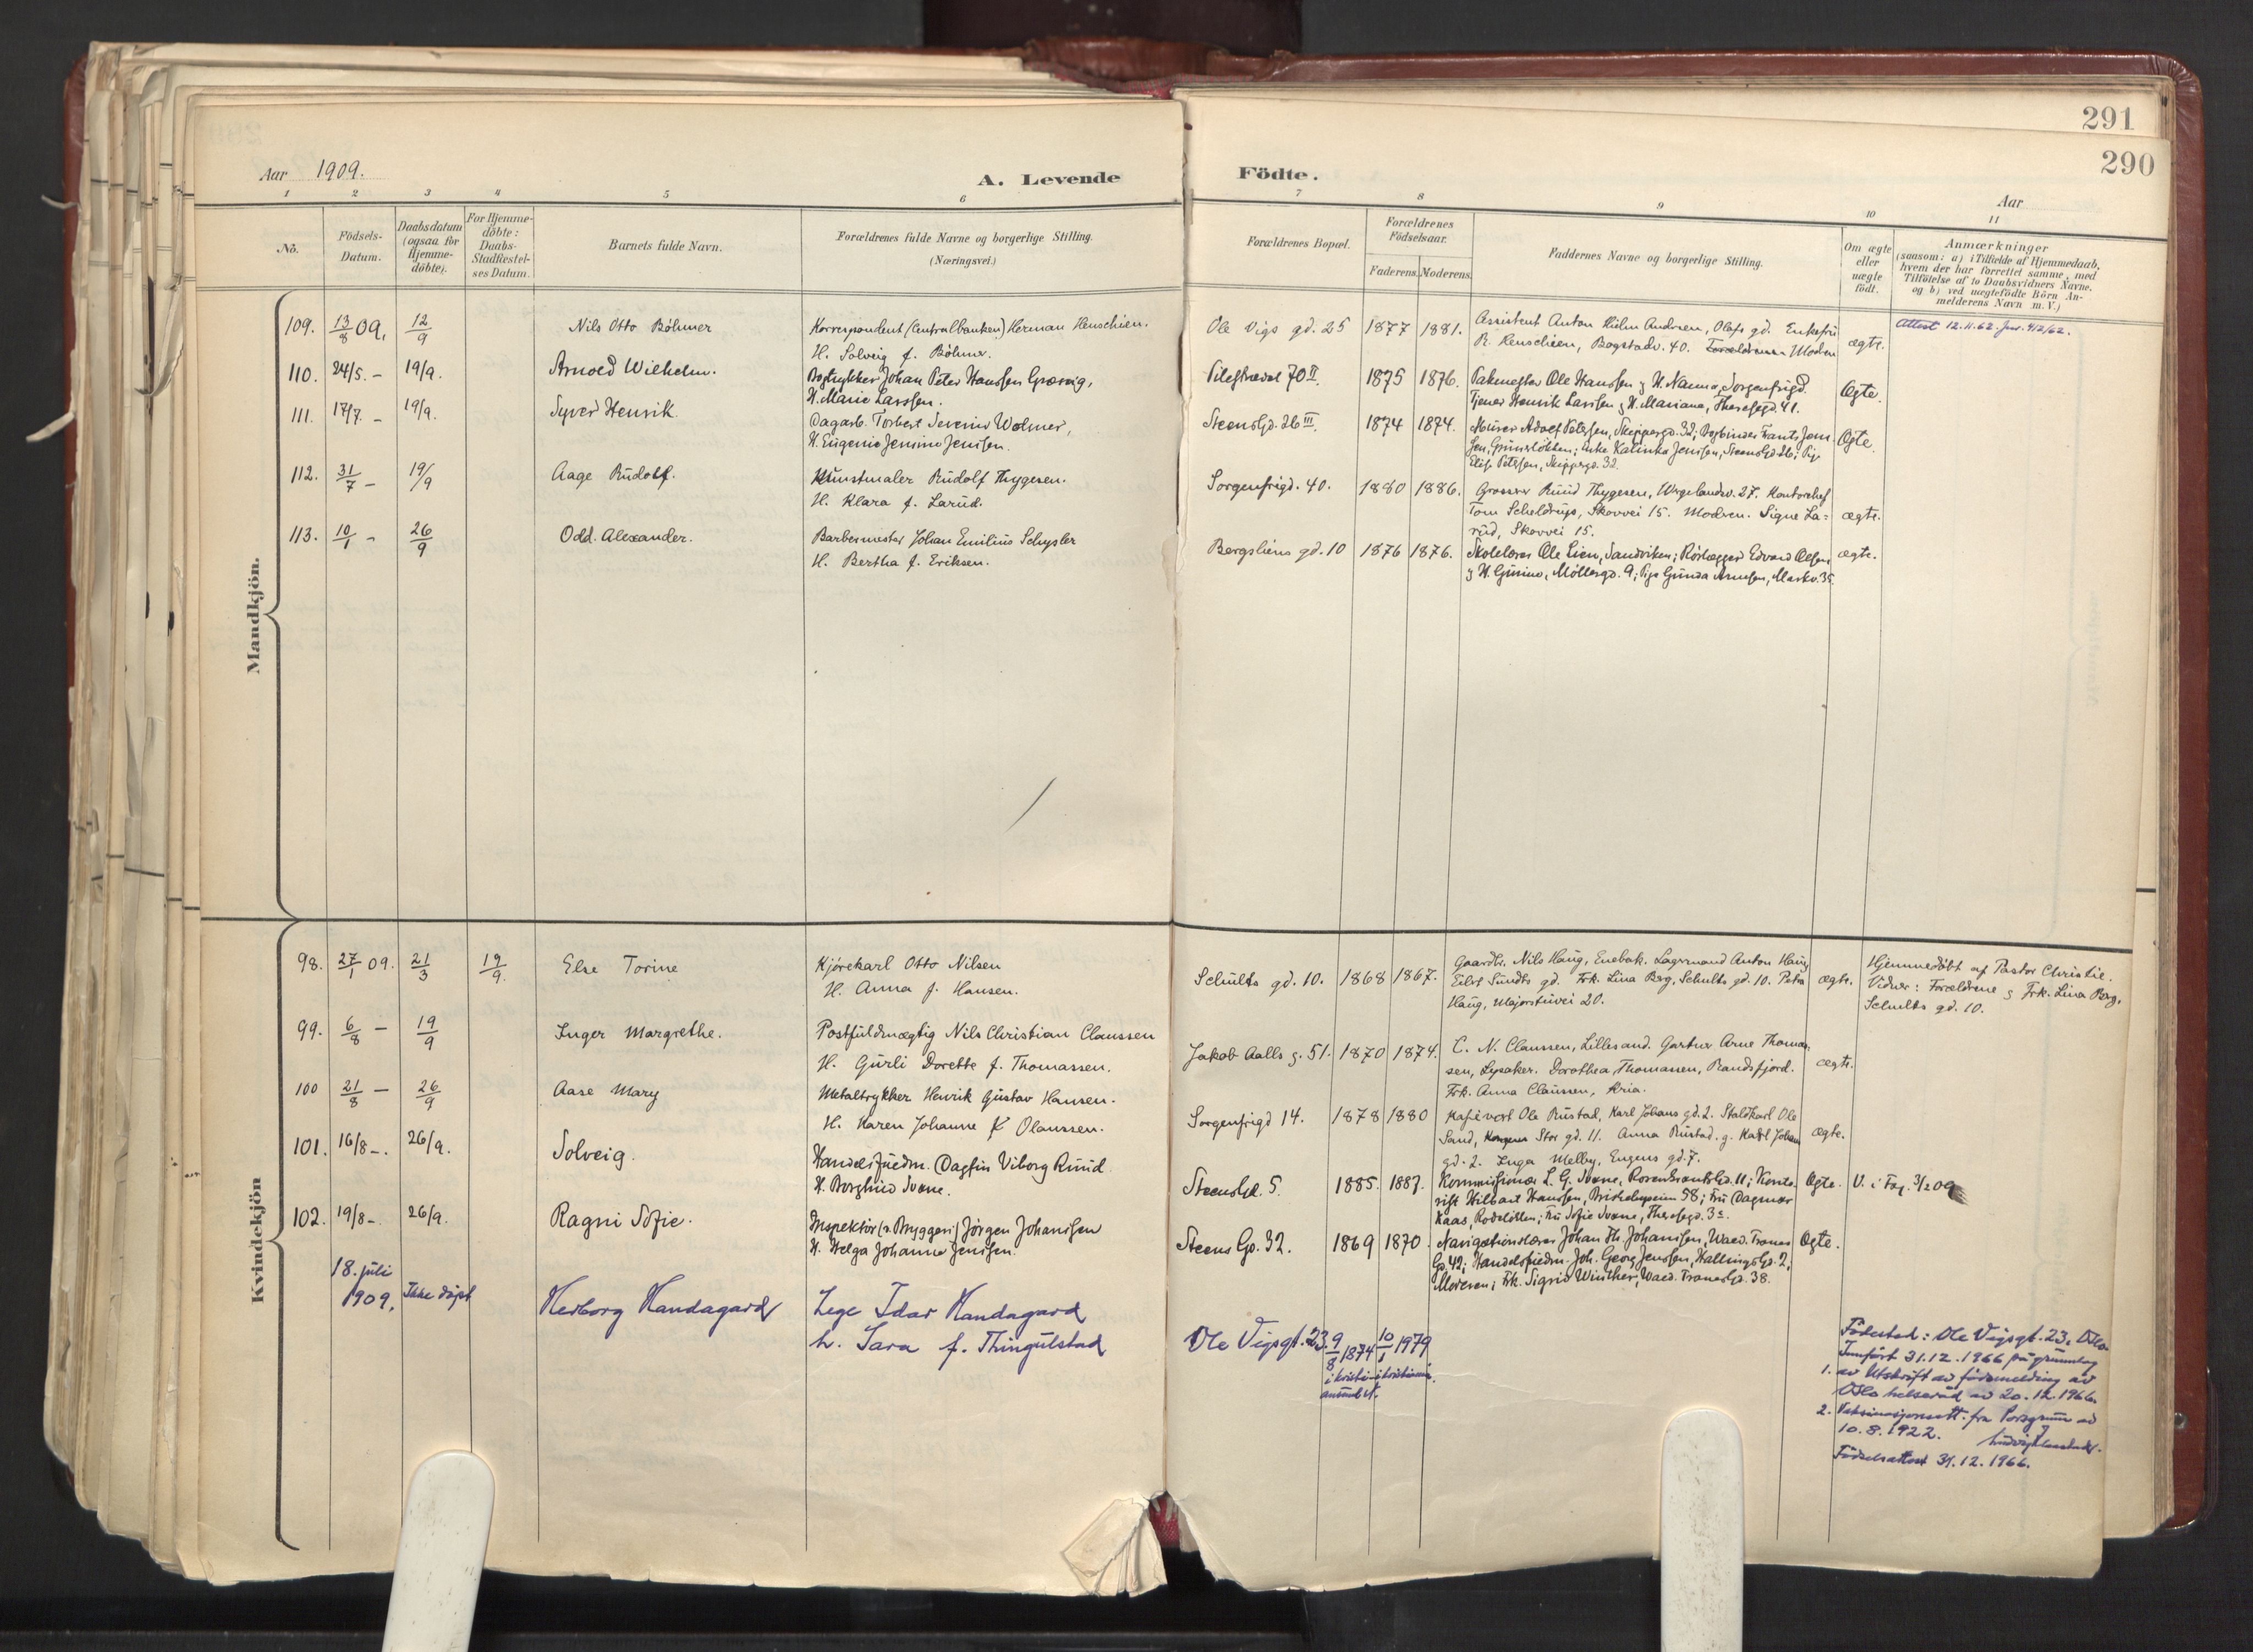 291
290
Aar 1909.
A. Levende Födte.
Aar
1 2 3 4 5 6 7 8 9 10 11
No.
Födsels-
Datum.
Daabsdatum
(ogsaa for
Hjemme-
döbte).
For Hjemme-
döbte:
Daabs-
Stadfæstel-
ses Datum.
Barnets fulde Navn.
Forældrenes fulde Navne og borgerlige Stilling.
(Næringsvei.)
Forældrenes Bopæl.
Forældrenes
Födselsaar.
Faderens. Moderens.
Faddernes Navne og borgerlige Stilling.
Om ægte
eller
uægte
födt.
Anmærkninger
(saasom: a) i Tilfælde af Hjemmedaab,
hvem der har forrettet samme, med
Tilföielse af to Daabsvidners Navne.
og b) ved uægtefödte Börn An-
melderens Navn m. V.)
Mandkjön.
109. 13/8 09. 12/9 Nils Otto Böhmer
Korrespondent (Centralbanken) Herman Henschien.
H. Solveig f. Böhmer.
Ole Vigs gd. 25 1877 1881.
Assistent Anton Holm Andresen, Olafs gd. Enkefru
R. Henschien, Bogstadv. 40. Forældrene Modren
ægte.
Attest 12.11.62. Jnr. 412/62.
110. 24/5. - 19/9. Arnold Wilhelm.
Bogtrykker Johan Peter Hanssen Græsvig,
H. Marie Larssen.
Pilestrædet 70 II. 1875 1876.
Pakmester Ole Hanssen & H. Nanna, Sorgenfrigd.
Tjener Henrik Larssen & H. Mariane, Theresegd. 41.
Ægte.
111. 17/7. - 19/9. Syver Henrik
Dagarb. Torbert Severin Wolmer,
H. Eugenie Jensine Jenssen.
Steensgd. 26 III. 1874 1874.
Murer Adolf Petersen, Skippergd. 32; Bogbinder Frants Jens-
sen, Grünerløkken; Enke Katinka Jenssen, Steensgd. 26; Pige
Elise Petersen, Skippergd. 32.
Ægte
112. 31/7 - 19/9 Aage Rudolf.
Kunstmaler Rudolf Thygesen.
H. Klara f. Larud.
Sorgenfrigd. 40. 1880 1886.
Grosserer Ruud Thygesen, Wergelandsv. 27. Kontorchef
Tom Scheldrup, Skovvei 15. Modren. Signe La-
rud, Skovvei 15.
ægte.
113. 10/1 - 26/9 Odd. Alexander.
Barbermester Johan Emilius Schysler
H. Bertha f. Eriksen.
Bergsliens gd. 10 1876 1876.
Skolelærer Ole Lien, Sandviken; Rørlægger Edvard Olsen
& H. Gusine, Møllergd. 9; Pige Gunda Arnesen, Markv. 35.
ægte.
Kvindekjön
98. 27/1 09. 21/3 19/9. Else Torine
Kjørekarl Otto Nilsen
H. Anna f. Hansen.
Schults gd. 10. 1868 1867.
Gaardbr. Nils Haug, Enebak. Lagermand Anton Haug
Eilert Sundts gd. Frk. Lina Berg, Schults gd. 10. Petra
Haug, Majorstuvei 20.
ægte.
Hjemmedöbt af Pastor Christie.
Vidner: Forældrene & Frk. Lina Berg,
Schults gd. 10.
99. 6/8 - 19/9 Inger Margrethe.
Postfuldmægtig Nils Christian Claussen
H. Gurli Dorette f. Thomassen.
Jakob Aalls g. 51. 1870 1874.
C. N. Claussen, Lillesand. Gartner Arne Thomas-
sen, Lysaker. Dorothea Thomassen, Randsfjord.
Frk. Anna Claussen, Kria.
ægte.
100 21/8 - 26/9 Aase Mary
Metaltrykker Henrik Gustav Hansen.
H. Karen Johanne f. Olaussen.
Sorgenfrigd 14. 1878 1880
Kafévert Ole Rustad, Karl Johans gd. 2. Staldkarl Ole
Sand, Kongens Stor gd. 11. Anna Rustad. g. Karl Johans
gd. 2. Inga Melby, Eugens gd. 7.
ægte.
101. 16/8 -. 26/9. Solveig.
Handelsfuldm. Dagfin Viborg Ruud
H. Borghild Svane.
Steensgd. 5. 1885. 1887.
Kommissionær L. G. Svane, Rosenkrantzgd. 11; Konto-
rist Hilbart Hanssen, Briskebyveien 58; Fru Dagmar
Kaas, Rodeløkken; Fru Sofie Svane, Theresegd. 3
Ægte.
V. i Fag. 3/2 09
102. 19/8 -. 26/9. Ragni Sofie.
Inspektör (v. Bryggeri) Jörgen Johanssen
H. Helga Johanne Jenssen.
Steens Gd. 32. 1869 1870
Navigationslærer Johan Th. Johanssen, Wald. Tranes
Gd. 42; Handelsfuldm. Joh. Georg Jenssen, Hallingsgd. 2,
Moderen; Frk. Sigrid Winther, Wald. Tranesgd. 38.
Ægte.
18. juli
1909. Ikke döpt Herborg Handagard
Lege Idar Handagard
h. Sara f. Thingulstad
Ole Vigsgt. 23. 9/8 1874 10/1 1979
i Kristiansund N. i Kristiania.
Födested: Ole Vigsgt. 23, Oslo.
Innfört 31.12.1966 på grunnlag
1. av Utskrift av födsmelding av
Oslo helseråd av 20.12.1966.
2. Vaksinasjonsatt. fra Porsgrunn av
10.8.1922.
Födselsattest 31.12.1966.